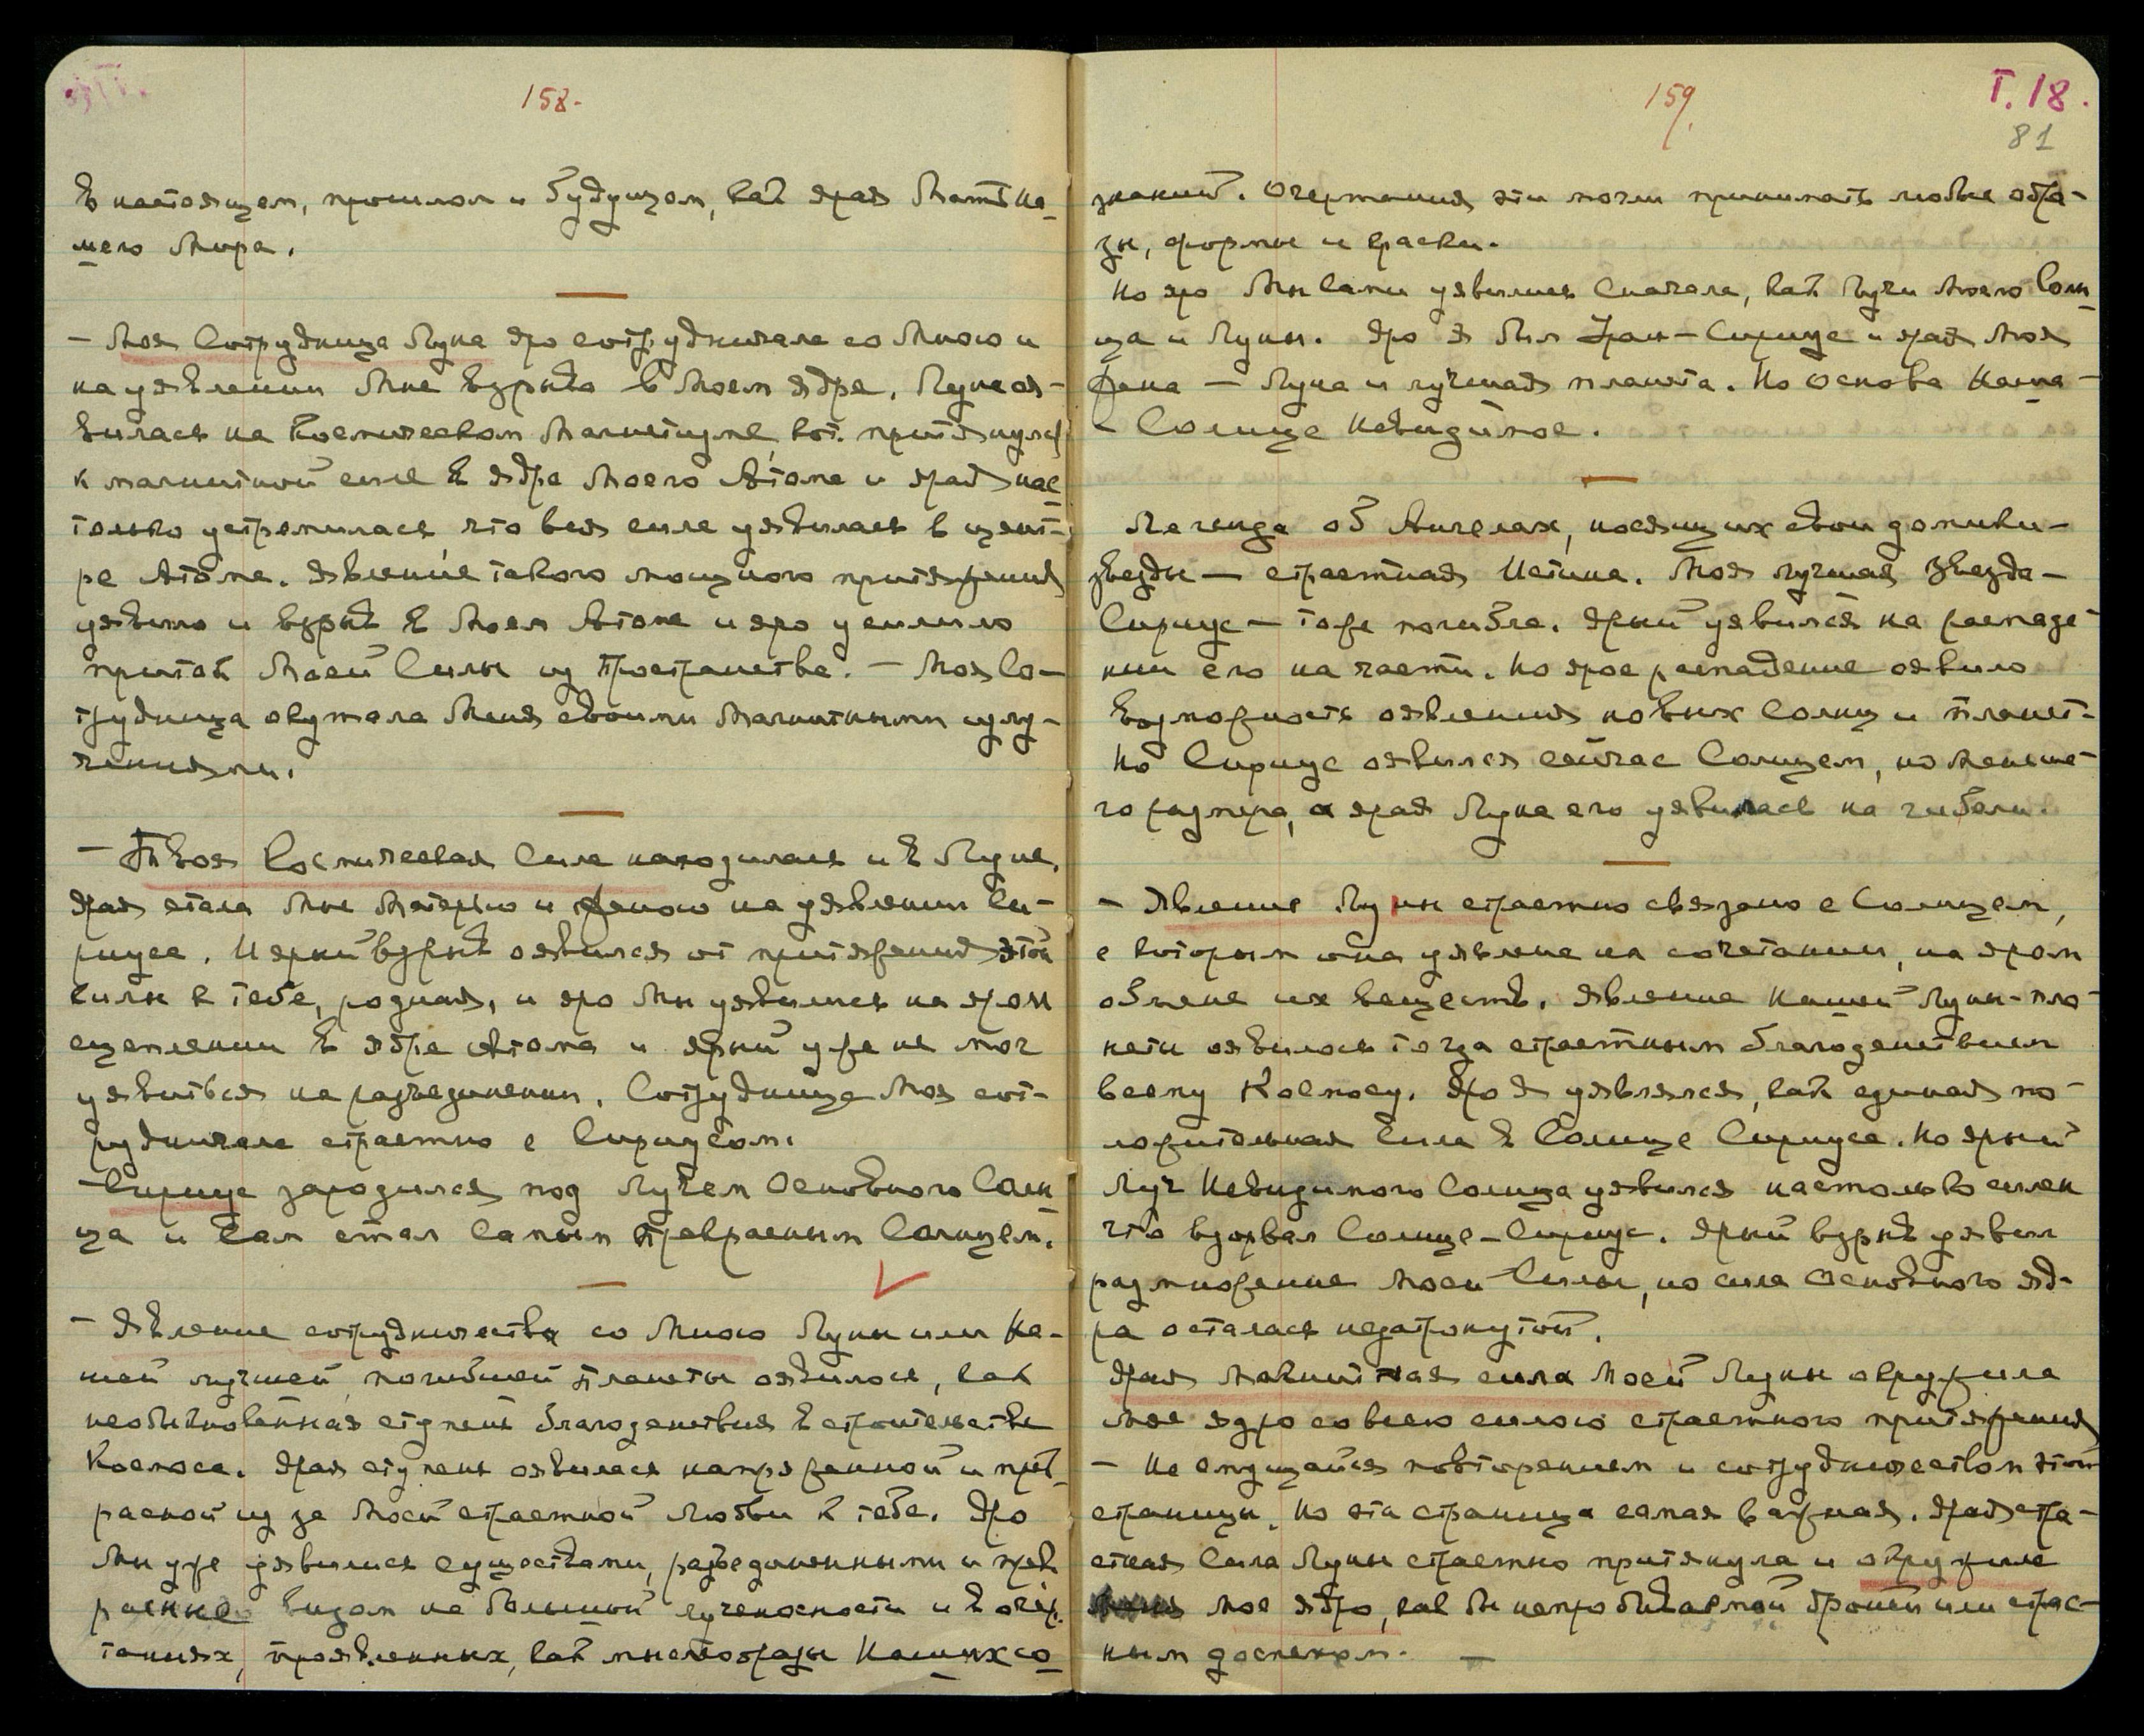 158.
в настоящем, прошлом и будущем, как ярая Мать На-
шего Мира.
— Моя Сотрудница Луна яро сотрудничала со Мною и
на уявлении Мне взрыва в Моем ядре. Луна оя-
вилась на Космическом Магните, кот. притянулся
к магнитной силе в ядре Моего Атома и ярая нас-
только устремилась что вся сила уявилась в цент-
ре Атома. Явление такого мощного притяжения
уявило и взрыв в Моем Атоме и яро усилило
приток Моей Силы из Пространства. — Моя Со-
трудница окутала Меня своими Магнитными излу-
чениями.
— Твоя Космическая Сила находилась и в Луне.
Ярая стала Мне Матерью и Женою на уявлении Си-
риуса. И ярый взрыв оявился от притяжения этой
силы к тебе, родная, и яро Мы уявились на яром
сцеплении в ядре Атома и ярый уже не мог
уявиться на разъединении. Сотрудница Моя сот-
рудничала страстно с Сириусом.
— Сириус зародился под Лучем Основного Солн-
ца и Сам стал самым прекрасным Солнцем.
— Явление сотрудничества со Мною Луны или На-
шей лучшей, погибшей планеты оявилось, как
необыкновенная ступень благоденствия в строительстве
Космоса. Ярая ступень оявилась напряженной и прек-
расной из за Моей страстной Любви к тебе. Яро
Мы уже уявились существами, разъединенными и прек
расные видом на большой лученосности и в очер-
таниях, проявленных, как мыслеобразы Наших со-
159.
Т. 18.
81
знаний. Очертания эти могли принимать любые обра-
зы, формы и краски.
Но яро Мы Сами уявились сначала, как Лучи Моего Солн-
ца и Луны. Яро Я был Уран-Сириус и ярая Моя
Жена — Луна и лучшая планета. Но Основа Наша —
— Солнце Невидимое.
Легенда об Ангелах, носящих свои домики-
звезды — страстная Истина. Моя лучшая Звезда —
Сириус — тоже погибла. Ярый уявился на распаде-
нии его на части. Но ярое распадение оявило
возможность оявления новых Солнц и планет.
Но Сириус оявился сейчас Солнцем, но меньше-
го размера, а ярая Луна его уявилась на гибели.
— Явление Луны страстно связано с Солнцем,
с которым она уявлена на сочетании, на яром
обмене их веществ. Явление Нашей Луны-пла-
неты оявилось тогда страстным благоденствием
всему Космосу. Яро Я уявлялся, как единая по-
ложительная Сила в Солнце Сириуса. Но ярый
Луч Невидимого Солнца уявился настолько силен
что взорвал Солнце-Сириус. Ярый взрыв уявил
размножение Моей Силы, но сила Основного яд-
ра осталась незатронутой.
Ярая магнитная сила Моей Луны окружила
мое ядро со всею силою страстного притяжения
— Не смущайся повторением и сотрудничеством этой
страницы. Но эта страница самая важная. Ярая стра-
стная Сила Луны страстно притянула и окружила
мое ядро, как бы непробиваемой броней или страс-
ным доспехом. —